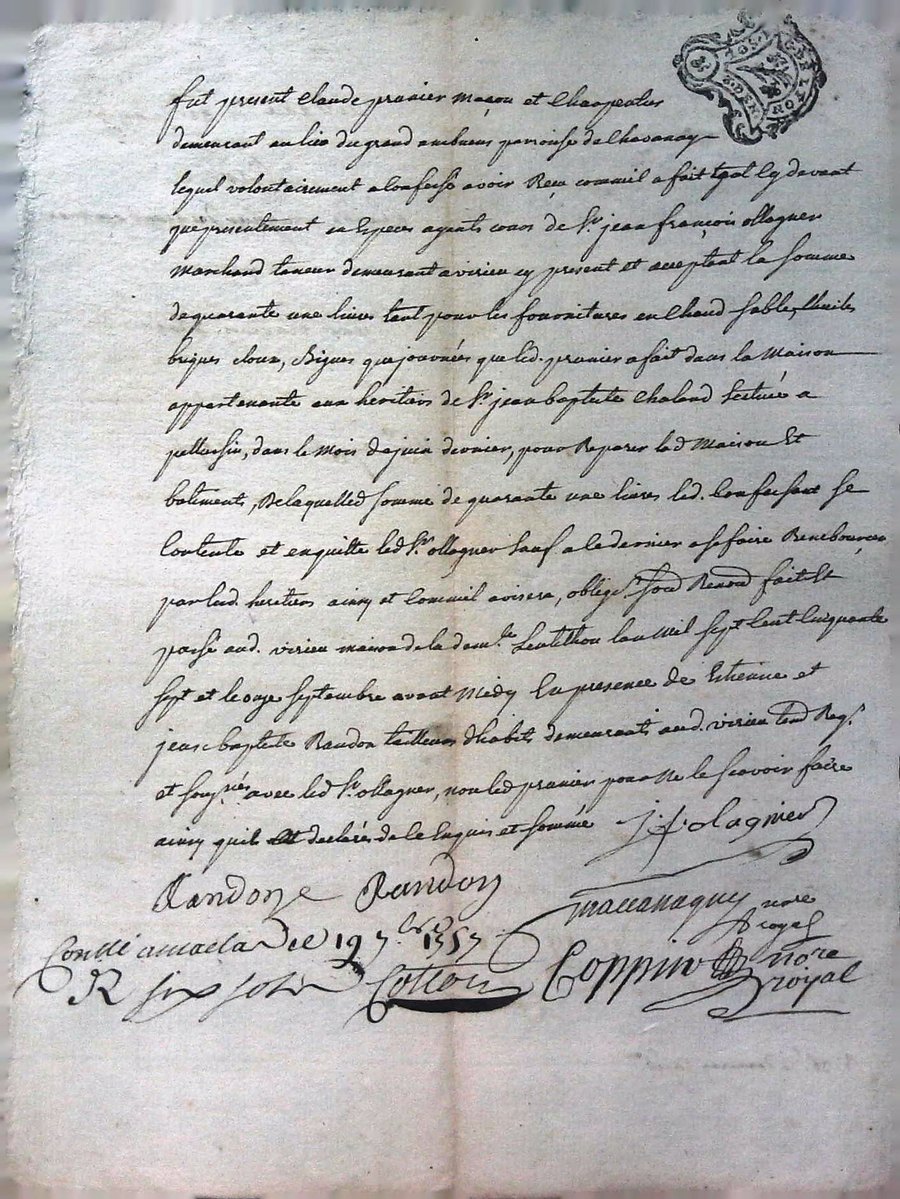 fut present Claude prunier maçon et Charpentier
demeurant au lieu du grand embuens parroisse de Chavanay
lequel volontairement a Confessé avoir Reçu comme il a fait tant Cy devant
que presentement en Especes ayants cours de Sr. jean françois ollagner
marchand taneur demeurant a virieu cy present et acceptant la somme
de quarante une livres tant pour les fournitures en Chaud sable, thuiles
briques cloux, Bigues que journées que led. prunier a fait dans la maison
appartenante aux heritiers de Sr. jean baptiste Chaland scituée a
pellussin, dans le mois de juin dernier, pour Reparer lad maison Et
batiments, De laquelle d somme de quarante une livres led. Confessant se
Contente et en quitte led Sr. ollagner sauf a ce dernier a se faire Rembourcer
par lesd. heritiers ainsy et Comme il avisera, oblige
fait Et
passé aud. virieu maison de la dem.lle Lentithou lan Mil sept Cent Cinquante
sept et le onze septembre avant Midy En presence de Estienne et
jean baptiste Randon tailleurs dhabits demeurants aud. virieu
et soug.nés avec led Sr. ollagner, non led prunier pour ne le scavoir faire
ainsy quil a declaré de ce Enquis et sommé J f olagnier
Randon e Randon
maccanaguy nore
royal
Conllé a maclas le 19 7bre 1757
R six sols Cotton Coppin nore
royal